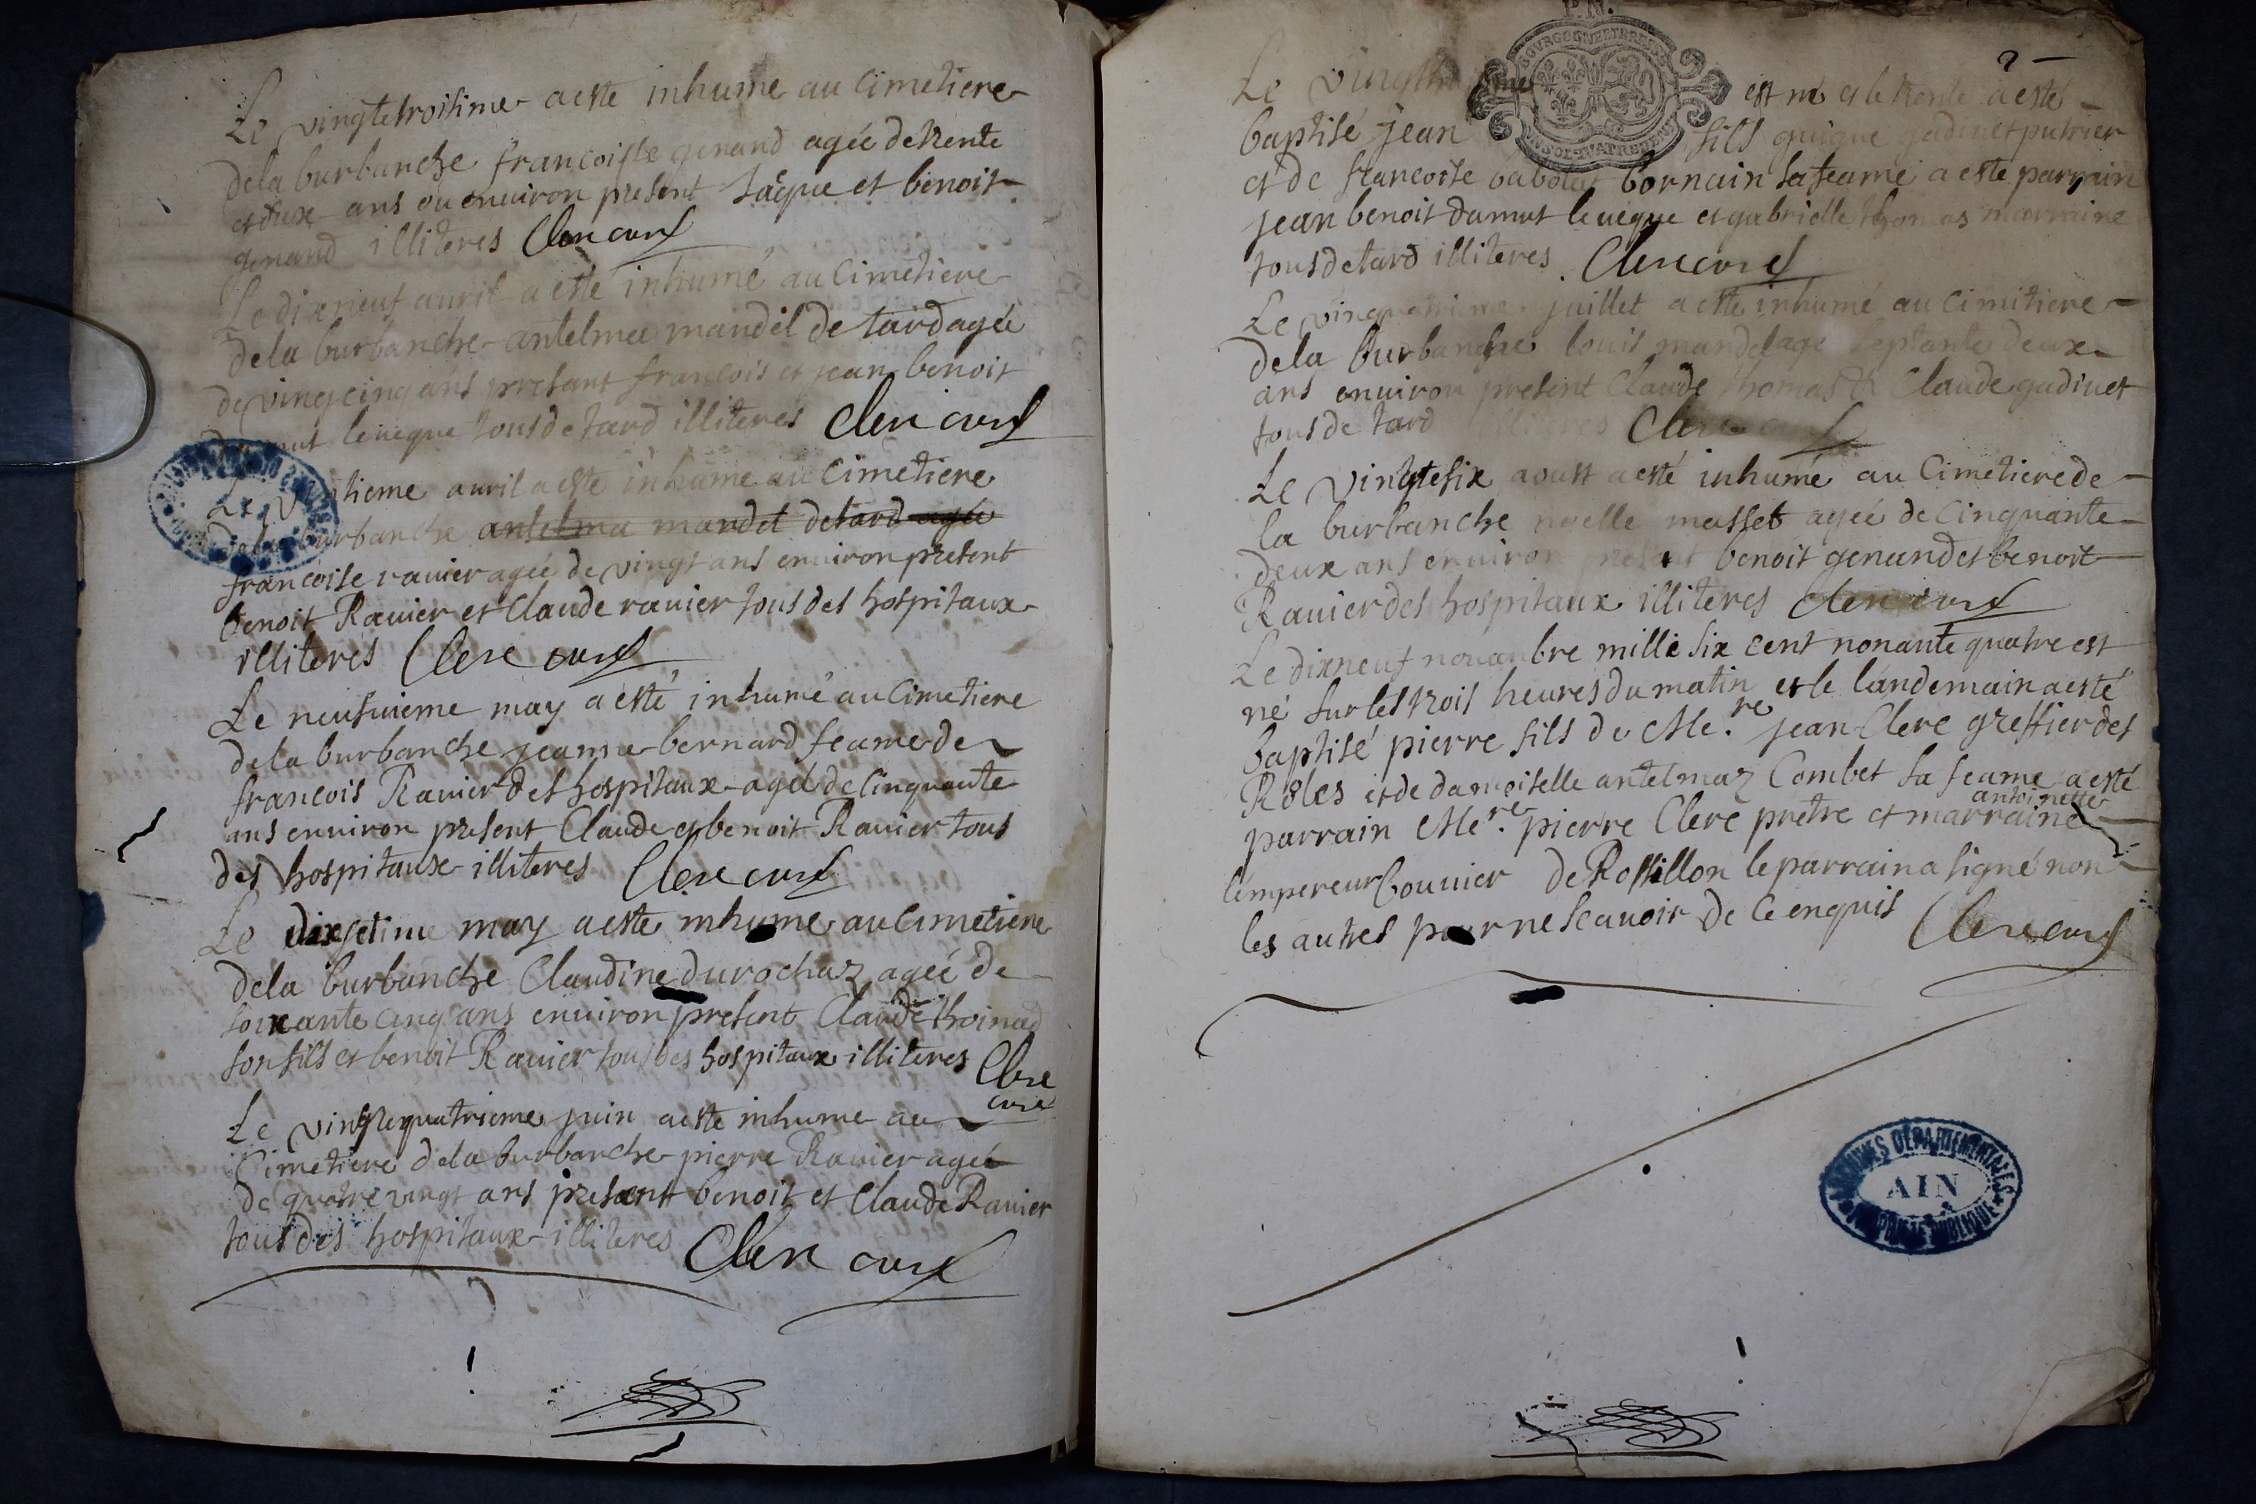 Le vingtetroisime aeste inhume au Cimetiere
dela burbanche francoise genand agée detrente
etdeux ans ouenuiron present Jâque et benoit
genand illiteres Clerc curé
Le dixneuf auril a este inhumé au Cimetiere
dela burbanche antelmea mandel de tard agée
de vingcinq ans present francois et jean benoit
leueque tous de tard illiteres Clerc curé
Le tieme auril a este inhume au Cimetiere
dela burbanche antelma mandel detard agée
francoise rauier agée de vingt ans enuiron present
benoit Rauier et Claude rauier tous des hospitaux
illiteres Clerc curé
Le neufuieme may a esté inhumé au Cimetiere
dela burbanche jeanne bernard feame de
francois Rauier des hospitaux agée de Cinquante
ans enuiron present Claude et benoit Rauier tous
des hospitaux illiteres Clerc curé
Le dixsetime may aeste inhume au Cimetiere
dela burbanche Claudine durochaz agée de
soixante cinq ans enuiron present Claude thoinad
son fils et benoit Rauier tous des hospitaux illiteres Clerc
curé
Le vingtequatrieme juin aeste inhume au
Cimetiere dela burbanche pierre Rauier agée
de quatre vingt ans present benoit et Claude Rauier
tous des hospitaux illiteres Clerc curé
P.N.
BOURGOGNE ET BRESSE
2
Le est né et le trente a esté
baptisé jean fils guigue gadiuet putrier
et de francoise bornain sa feame a este parrain
jean benoit damut leuéque et gabrielle thomas marraine
tous de tard illiteres Clerc curé
Le juillet a esté inhumé au Cimitiere
dela burbanche louis mandel agé septante deux
ans enuiron present Claude thomas et Claude gadiuet
tous de tard illiteres Clerc curé
Le vingtesix aoust a esté inhumé au Cimetiere de
la burbanche noelle masset agée de Cinquante
deux ans enuiron present benoit genand et benoit
Rauier des hospitaux illiteres Clerc curé
Le dixneuf nouambre mille six cent nonante quatre est
né sur les trois heures du matin et le landemain a esté
baptisé pierre fils de Me.re jean Clerc greffier des
Rôles et de damoiselle antelmaz Combet sa feame a esté
parrain Me.re pierre Clerc prêtre et marraine antoinette
lempereur bouuier de Rossillon le parrain a signé non
les autres pour ne scauoir de Ce enquis Clerc curé
ARCHIVES DÉPARTEMENTALES
AIN